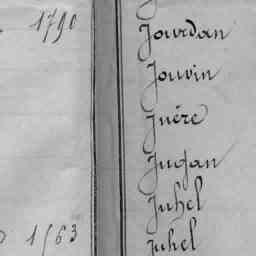 1790
Jourdan
Jouvin
Juère
Jugan
Juhel
1763
Juhel